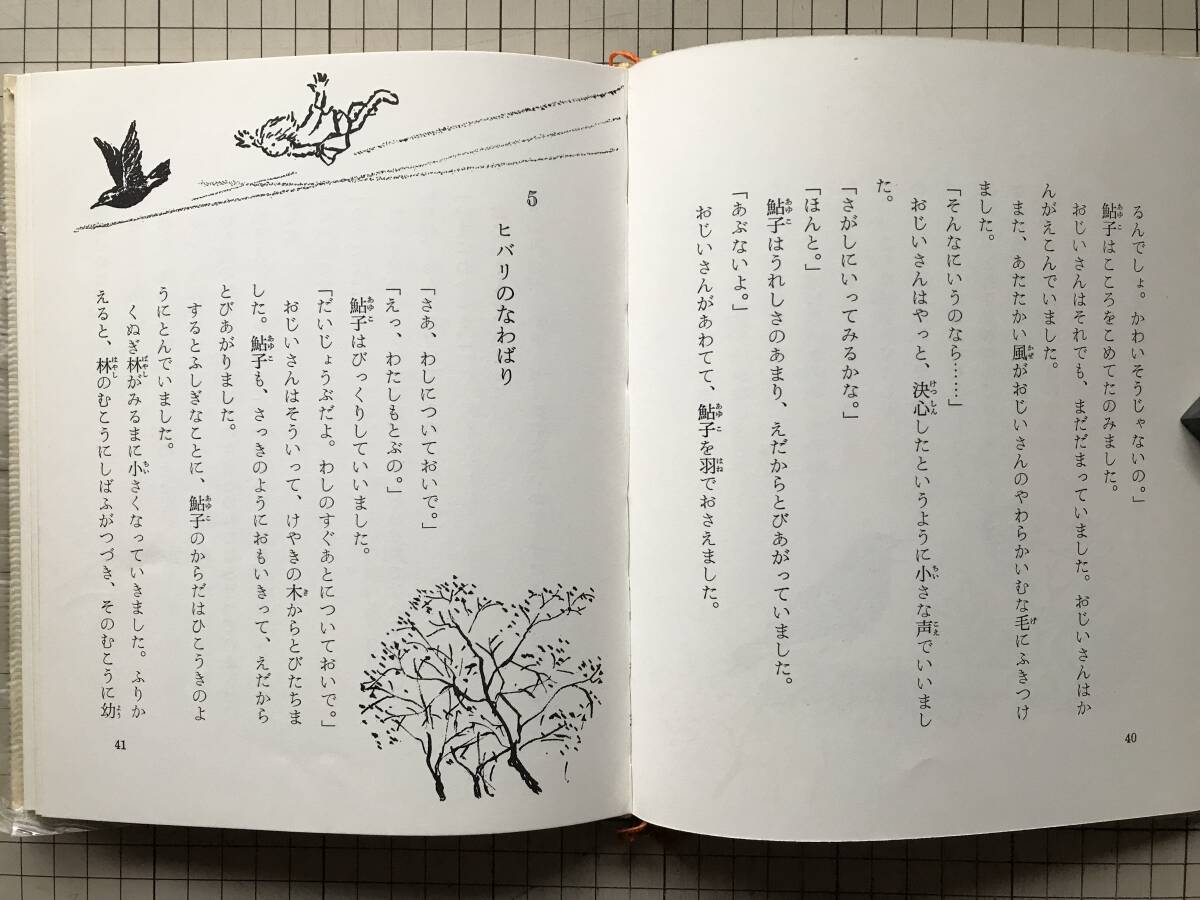 るんでしょ。かわいそうじゃないの。」
鮎子はこころをこめてたのみました。
おじいさんはそれでも、まだだまっていました。おじいさんはか
んがえこんでいました。
また、あたたかい風がおじいさんのやわらかいむな毛にふきつけ
ました。
「そんなにいうのなら……」
おじいさんはやっと、決心したというように小さな声でいいまし
た。
「さがしにいってみるかな。」
「ほんと。」
鮎子はうれしさのあまり、えだからとびあがっていました。
「あぶないよ。」
おじいさんがあわてて、鮎子を羽でおさえました。
40
5
ヒバリのなわばり
「さあ、わしについておいで。」
「えっ、わたしもとぶの。」
鮎子はびっくりしていいました。
「だいじょうぶだよ。わしのすぐあとについておいで。」
おじいさんはそういって、けやきの木からとびたちま
した。鮎子も、さっきのようにおもいきって、えだから
とびあがりました。
するとふしぎなことに、鮎子のからだはひこうきのよ
うにとんでいました。
くぬぎ林がみるまに小さくなっていきました。ふりか
えると、林のむこうにしばふがつづき、そのむこうに幼
41